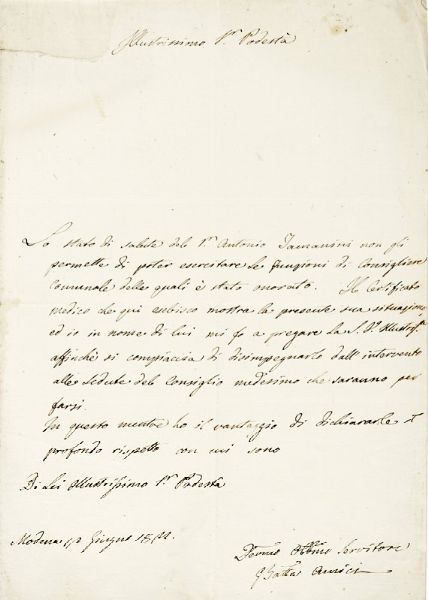 Illustrissimo Sr. Podestà
Lo stato di salute del Sr. Antonio non gli
permette di poter esercitare le funzioni di Consigliere
Comunale delle quali è stato onorato. Il Certificato
medico che qui esibisco mostra la presente sua situazione,
ed io in nome di lui mi fo a pregare la S. V. Illustrma
affinché si compiaccia di disimpegnarlo dall'intervento
alle sedute del Consiglio medesimo che saranno per
farsi.
In questo mentre ho il vantaggio di dichiararle il
profondo rispetto con cui sono
Di Lei Illustrissimo Sr. Podestà
Modena Giugno
Devmo Obbmo Servitore